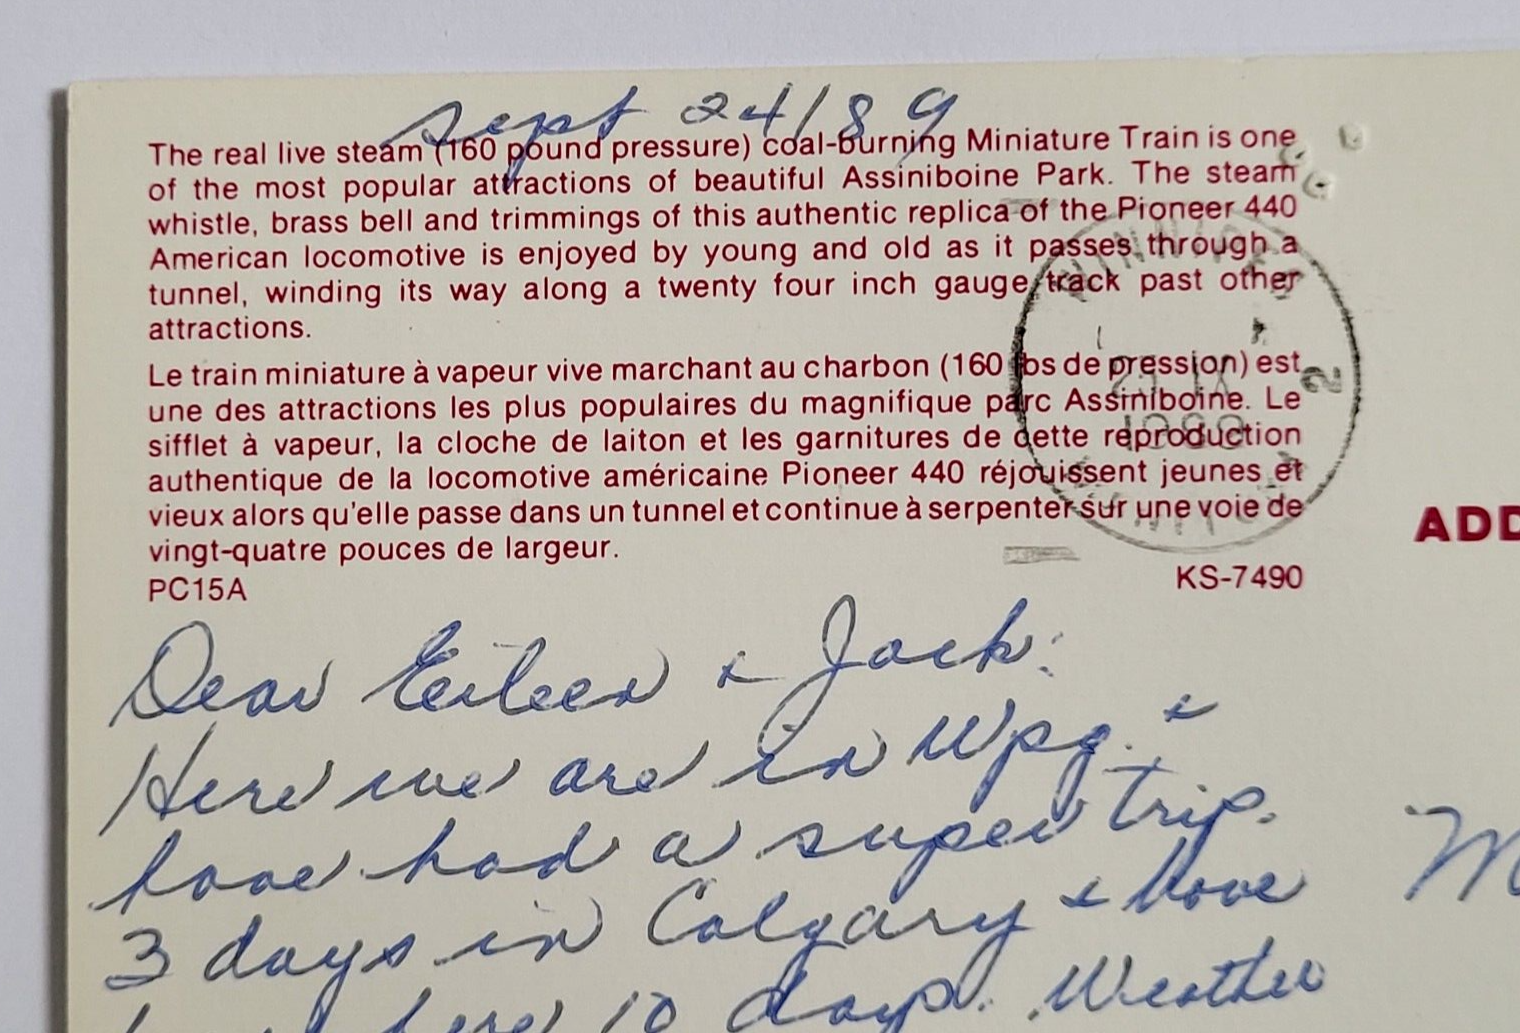 Sept 24/89
The real live steam (160 pound pressure) coal-burning Miniature Train is one
of the most popular attractions of beautiful Assiniboine Park. The steam
whistle, brass bell and trimmings of this authentic replica of the Pioneer 440
American locomotive is enjoyed by young and old as it passes through a
tunnel, winding its way along a twenty four inch gauge track past other
attractions.
Le train miniature à vapeur vive marchant au charbon (160 lbs de pression) est
une des attractions les plus populaires du magnifique parc Assiniboine. Le
sifflet à vapeur, la cloche de laiton et les garnitures de cette reproduction
authentique de la locomotive américaine Pioneer 440 réjouissent jeunes et
vieux alors qu'elle passe dans un tunnel et continue à serpenter sur une voie de
vingt-quatre pouces de largeur.
PC15A
KS-7490
WINNIPEG
2
ADD
Dear Eileen & Jack:
Here we are in Wpg. &
have had a super trip.
3 days in Calgary & have
here 10 days. Weather
M